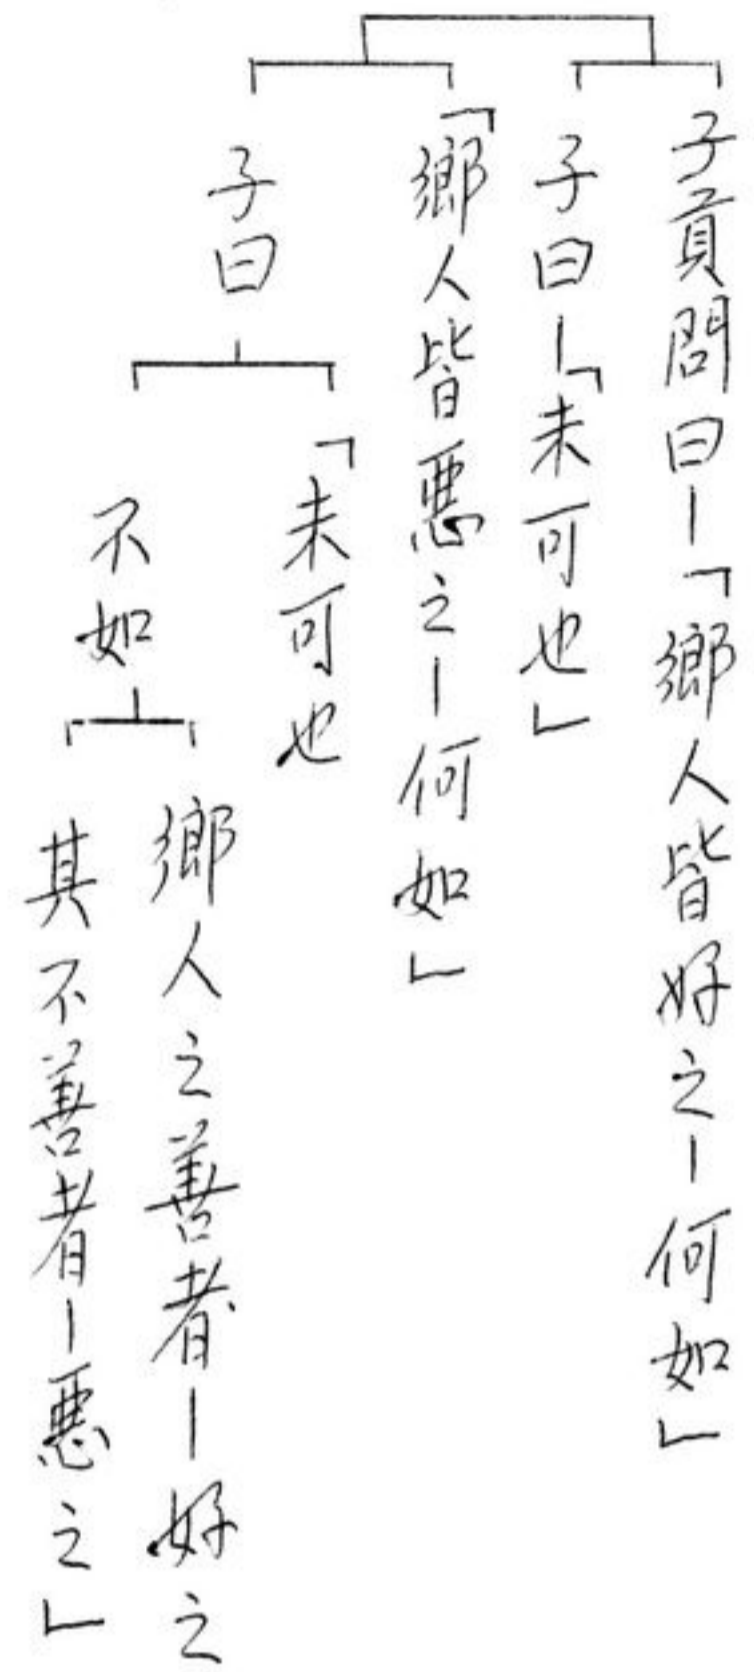 子貢問曰－「鄉人皆好之－何如」
子曰－「未可也」
「鄉人皆惡之－何如」
子曰
「未可也
不如
鄉人之善者－好之
其不善者－惡之」